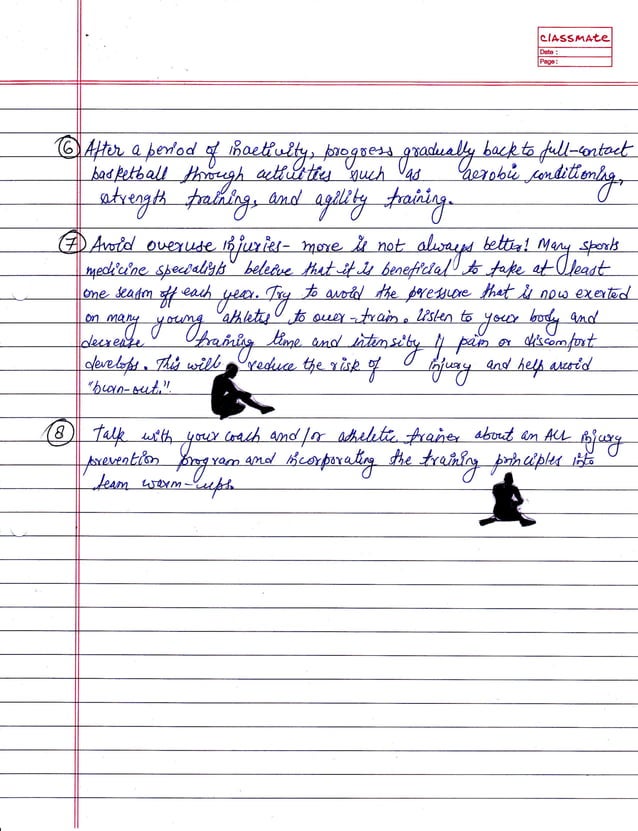 CLASSMATE
Date :
Page :
6 After a period of inactivity, progress gradually back to full-contact
basketball through activities such as aerobic conditioning,
strength training, and agility training.
7 Avoid overuse injuries - more is not always better! Many sports
medicine specialists beleive that it is beneficial to take at least
one season off each year. Try to avoid the pressure that is now exerted
on many young athletes to over-train. Listen to your body and
decrease training time and intensity if pain or discomfort
develops. This will reduce the risk of injury and help avoid
"burn-out."
8 Talk with your coach and/or atheletic trainer about an ACL injury
prevention program and incorporating the training principles into
team warm-ups.